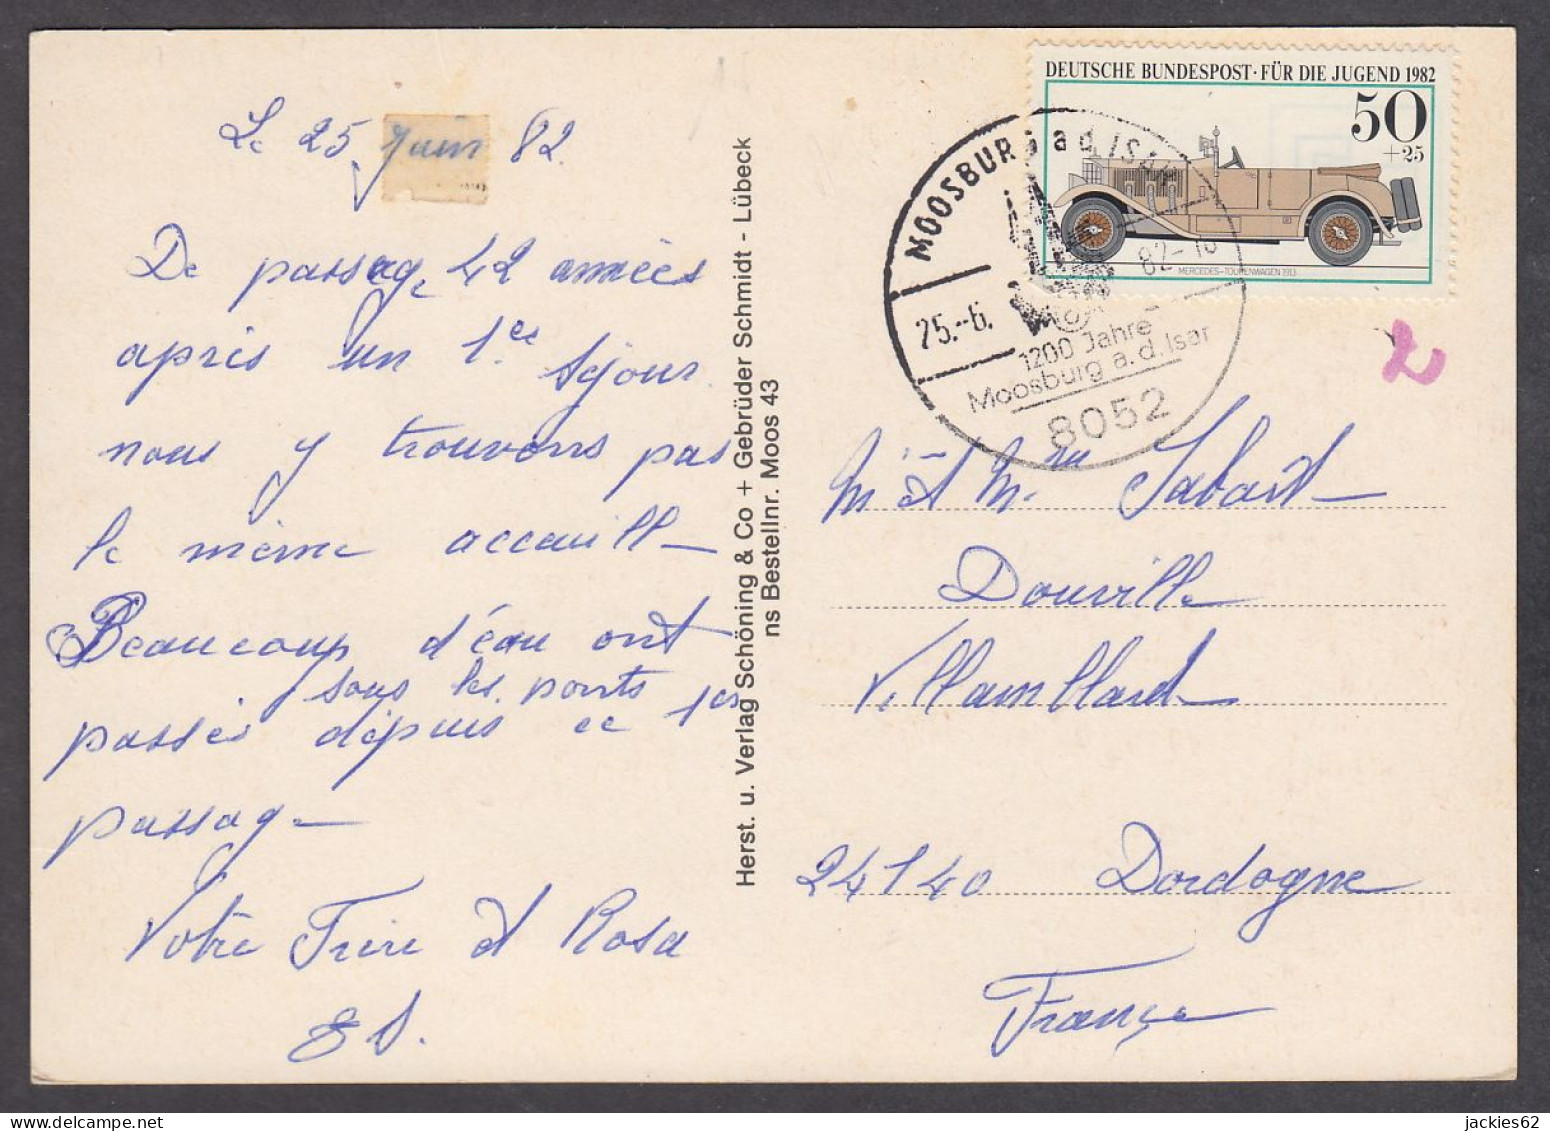 Le 25 Juin 82.
De passage 42 années
après un 1er séjour
nous y trouvons pas
le même accueill
Beaucoup d'éau ont
sous les ponts
passés dépuis ce 1er
passage
Votre Frère et Rosa
Herst. u. Verlag Schöning & Co + Gebrüder Schmidt - Lübeck
ns Bestellnr. Moos 43
DEUTSCHE BUNDESPOST·FÜR DIE JUGEND 1982
50
+25
MERCEDES-TOURENWAGEN 1913
MOOSBURG a d. ISAR
25.-6. 82-16
1200 Jahre
Moosburg a.d. Isar
8052
2
M et Mme Sabart
Douville
Villamblard
24140 Dordogne
France
jackies62